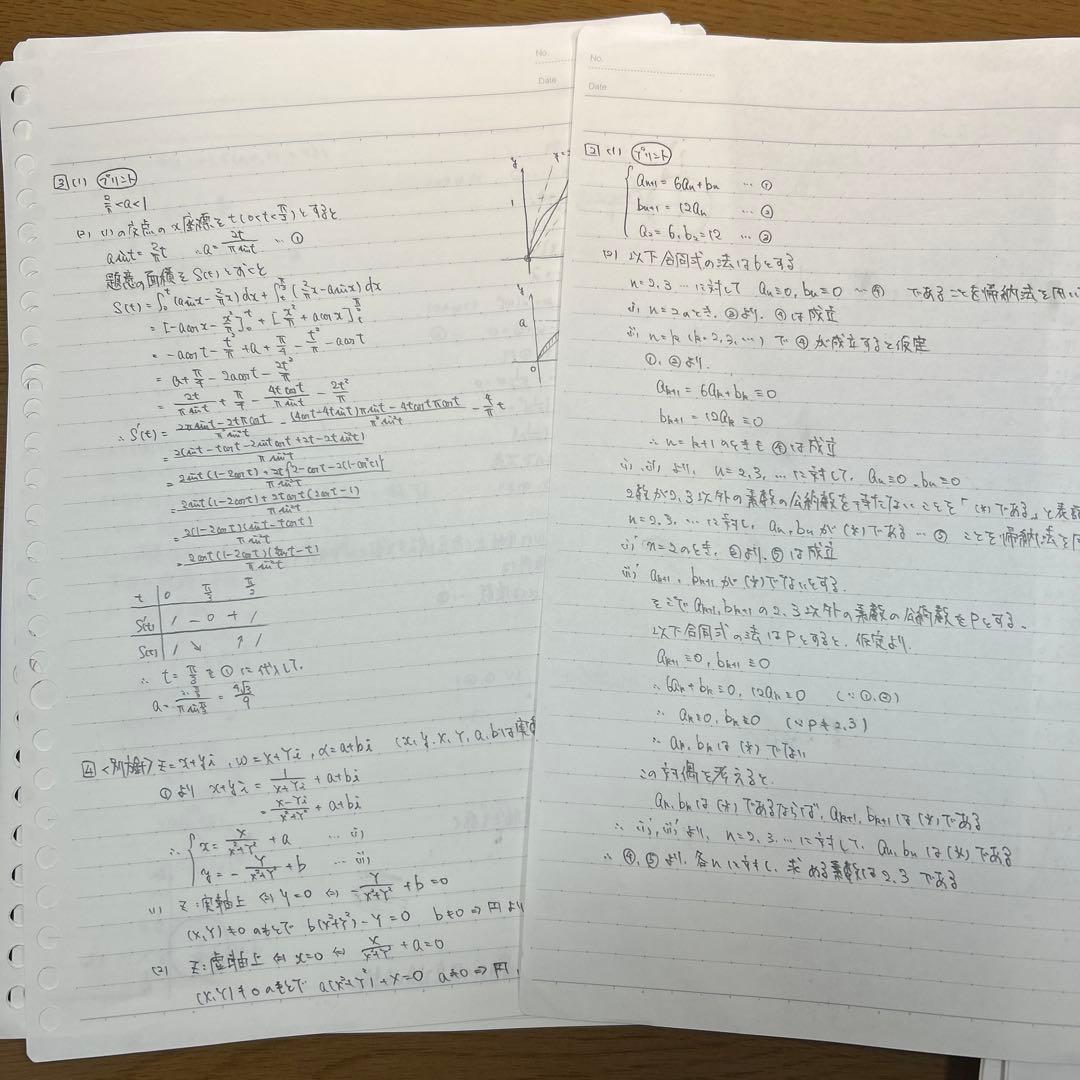 No.
Date
3 (1) プリント
2/π < a < 1
(2) (1)の交点のx座標をt(0<t<π/2)とすると
a sin t = 2/π t ∴ a = 2t/(π sin t) … ①
題意の面積をS(t)とおくと
S(t) = ∫₀ᵗ (a sin x − 2/π x) dx + ∫ₜ^(π/2) (2/π x − a sin x) dx
= [−a cos x − x²/π]₀ᵗ + [x²/π + a cos x]ₜ^(π/2)
= −a cos t − t²/π + a + π/4 − t²/π − a cos t
= a + π/4 − 2a cos t − 2t²/π
= 2t/(π sin t) + π/4 − 4t cos t/(π sin t) − 2t²/π
∴ S'(t) = (2π sin t − 2tπ cos t)/(π² sin² t) − ((4cos t − 4t sin t)π sin t − 4t cos t π cos t)/(π² sin² t) − 4/π t
= 2(sin t − t cos t − 2 sin t cos t + 2t − 2t sin² t)/(π sin² t)
= (2 sin t(1 − 2cos t) + 2t{2 − cos t − 2(1 − cos² t)})/(π sin² t)
= (2 sin t(1 − 2cos t) + 2t cos t(2cos t − 1))/(π sin² t)
= 2(1 − 2cos t)(sin t − t cos t)/(π sin² t)
= 2cos t(1 − 2cos t)(tan t − t)/(π sin² t)
t 0 π/3 π/2
S'(t) / − 0 + /
S(t) / ↘ ↗ /
∴ t = π/3 を①に代入して、
a = (2・π/3)/(π sin π/3) = 4√3/9
y
1
0
y
a
0
4 <別解> z = x+yi , w = X+Yi , α = a+bi (x, y, X, Y, a, bは実
①より x+yi = 1/(X+Yi) + a+bi
= (X−Yi)/(X²+Y²) + a+bi
∴ { x = X/(X²+Y²) + a … (i)
y = −Y/(X²+Y²) + b … (ii)
(1) z:実軸上 ⇔ y=0 ⇔ −Y/(X²+Y²) + b = 0
(X,Y)≠0のもとで b(X²+Y²) − Y = 0 b≠0 ⇒ 円より
(2) z:虚軸上 ⇔ x=0 ⇔ X/(X²+Y²) + a = 0
(X,Y)≠0のもとで a(X²+Y²) + X = 0 a≠0 ⇒ 円,
No.
Date
2 (1) プリント
{ aₙ₊₁ = 6aₙ + bₙ … ①
bₙ₊₁ = 12aₙ … ②
a₂ = 6, b₂ = 12 … ③
(2) 以下合同式の法は6とする
n=2,3…に対して aₙ≡0, bₙ≡0 …④ であることを帰納法を用い
i) n=2のとき、③より、④は成立
ii) n=k (k=2,3,…) で④が成立すると仮定
①,②より、
aₖ₊₁ = 6aₖ + bₖ ≡ 0
bₖ₊₁ = 12aₖ ≡ 0
∴ n=k+1のときも④は成立
i), ii)より、n=2,3,…に対して、aₙ≡0, bₙ≡0
2数が2,3以外の素数の公約数を持たないことを「(*)である」と表記
n=2,3,…に対し、aₙ,bₙが(*)である…⑤ ことを帰納法を用
i)' n=2のとき、③より、⑤は成立
ii)' aₖ₊₁, bₖ₊₁が(*)でないとする。
そこでaₖ₊₁,bₖ₊₁の2,3以外の素数の公約数をPとする。
以下合同式の法はPとすると、仮定より、
aₖ₊₁≡0, bₖ₊₁≡0
∴ 6aₖ + bₖ ≡ 0, 12aₖ ≡ 0 (∵①,②)
∴ aₖ≡0, bₖ≡0 (∵P≠2,3)
∴ aₖ, bₖは(*)でない
この対偶を考えると、
aₖ, bₖは(*)であるならば、aₖ₊₁, bₖ₊₁は(*)である
∴ i)', ii)'より、n=2,3,…に対して、aₙ, bₙは(*)である
∴ ④,⑤より、各nに対し、求める素数は2,3である